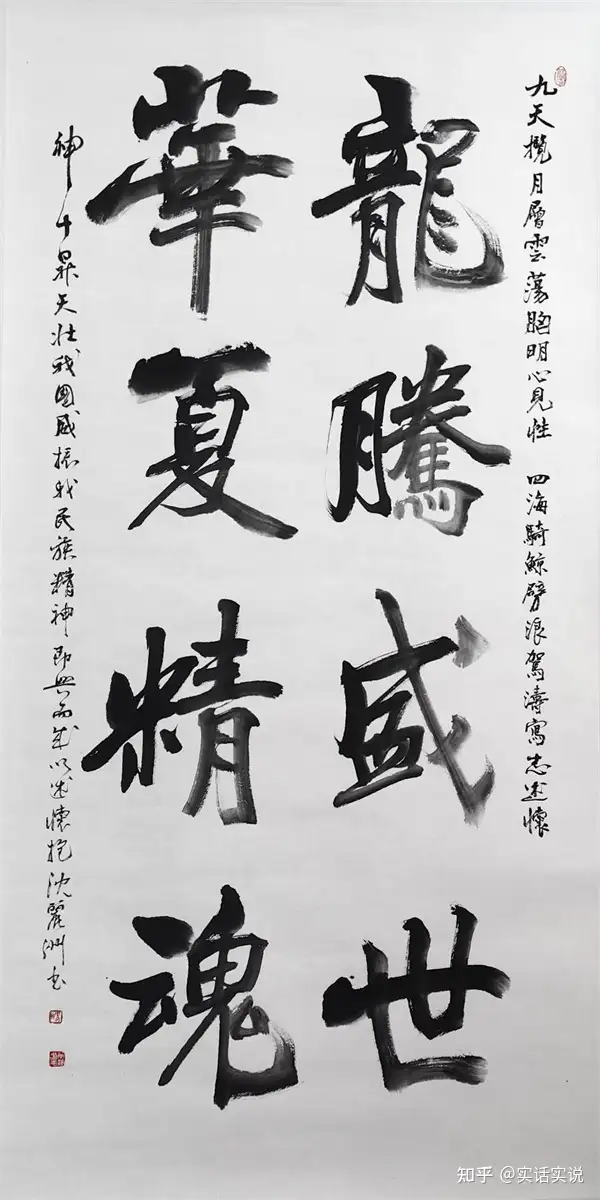 九天攬月層雲蕩胸明心見性 四海騎鯨劈浪駕濤寫志述懷
龍騰盛世
華夏精魂
神十昇天壯我國威振我民族精神即興而成以述懷抱沈麗洲书
知乎 @实话实说